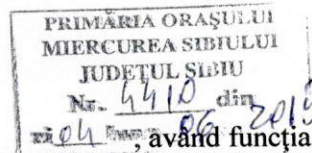 PRIMĂRIA ORAȘULUI
MIERCUREA SIBIULUI
JUDEȚUL SIBIU
Nr. 4410 din
04 06 2019
, având funcția